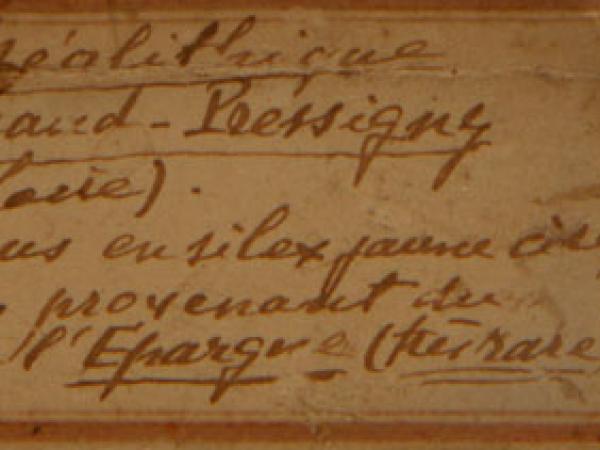 néolithique
rand-Pressigny
Loire).
us en silex jaune cire
provenant du
l'Epargne (très rare